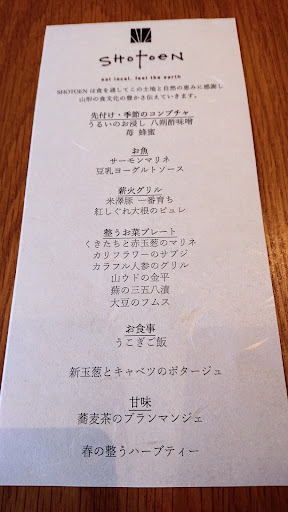 SHOTOEN
eat local, feel the earth
SHOTOEN は食を通してこの土地と自然の恵みに感謝し
山形の食文化の豊かさ伝えていきます。
先付け・季節のコンブチャ
うるいのお浸し 八朔酢味噌
苺 蜂蜜
お魚
サーモンマリネ
豆乳ヨーグルトソース
薪火グリル
米澤豚 一番育ち
紅しぐれ大根のピュレ
整うお菜プレート
くきたちと赤玉葱のマリネ
カリフラワーのサブジ
カラフル人参のグリル
山ウドの金平
蕪の三五八漬
大豆のフムス
お食事
うこぎご飯
新玉葱とキャベツのポタージュ
甘味
蕎麦茶のブランマンジェ
春の整うハーブティー